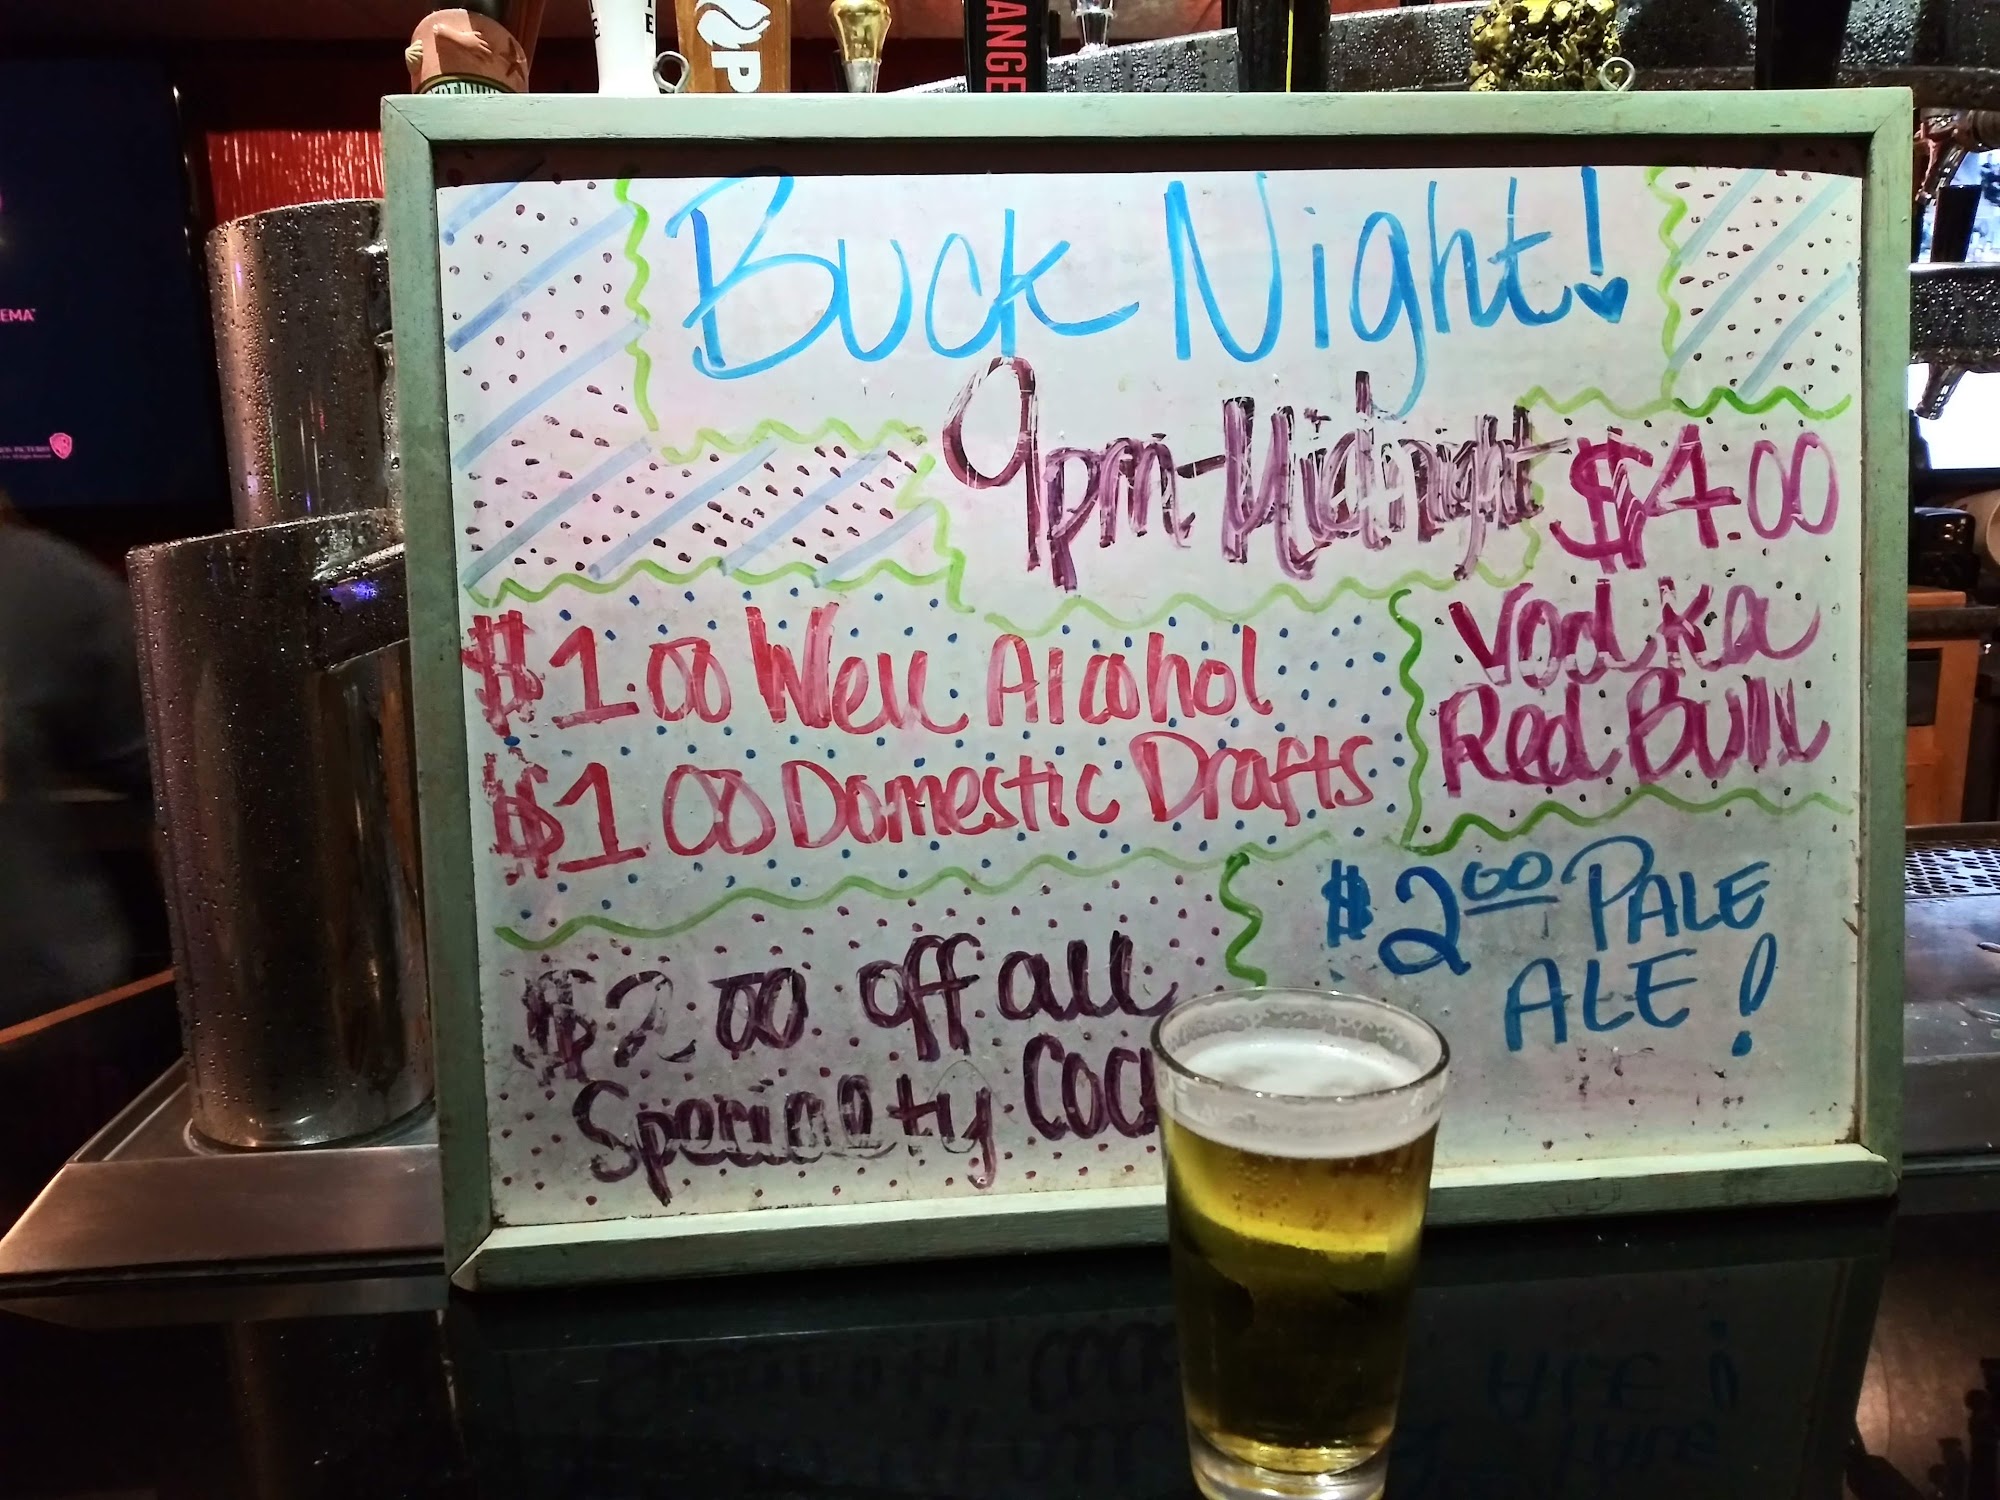 ANGE
OP
EMA
Buck Night!
9pm-Midnight
$4.00
Vodka
Red Bull
$1.00 Well Alcohol
$1.00 Domestic Drafts
$2.00 off all
Specialty
$2.00 PALE
ALE!